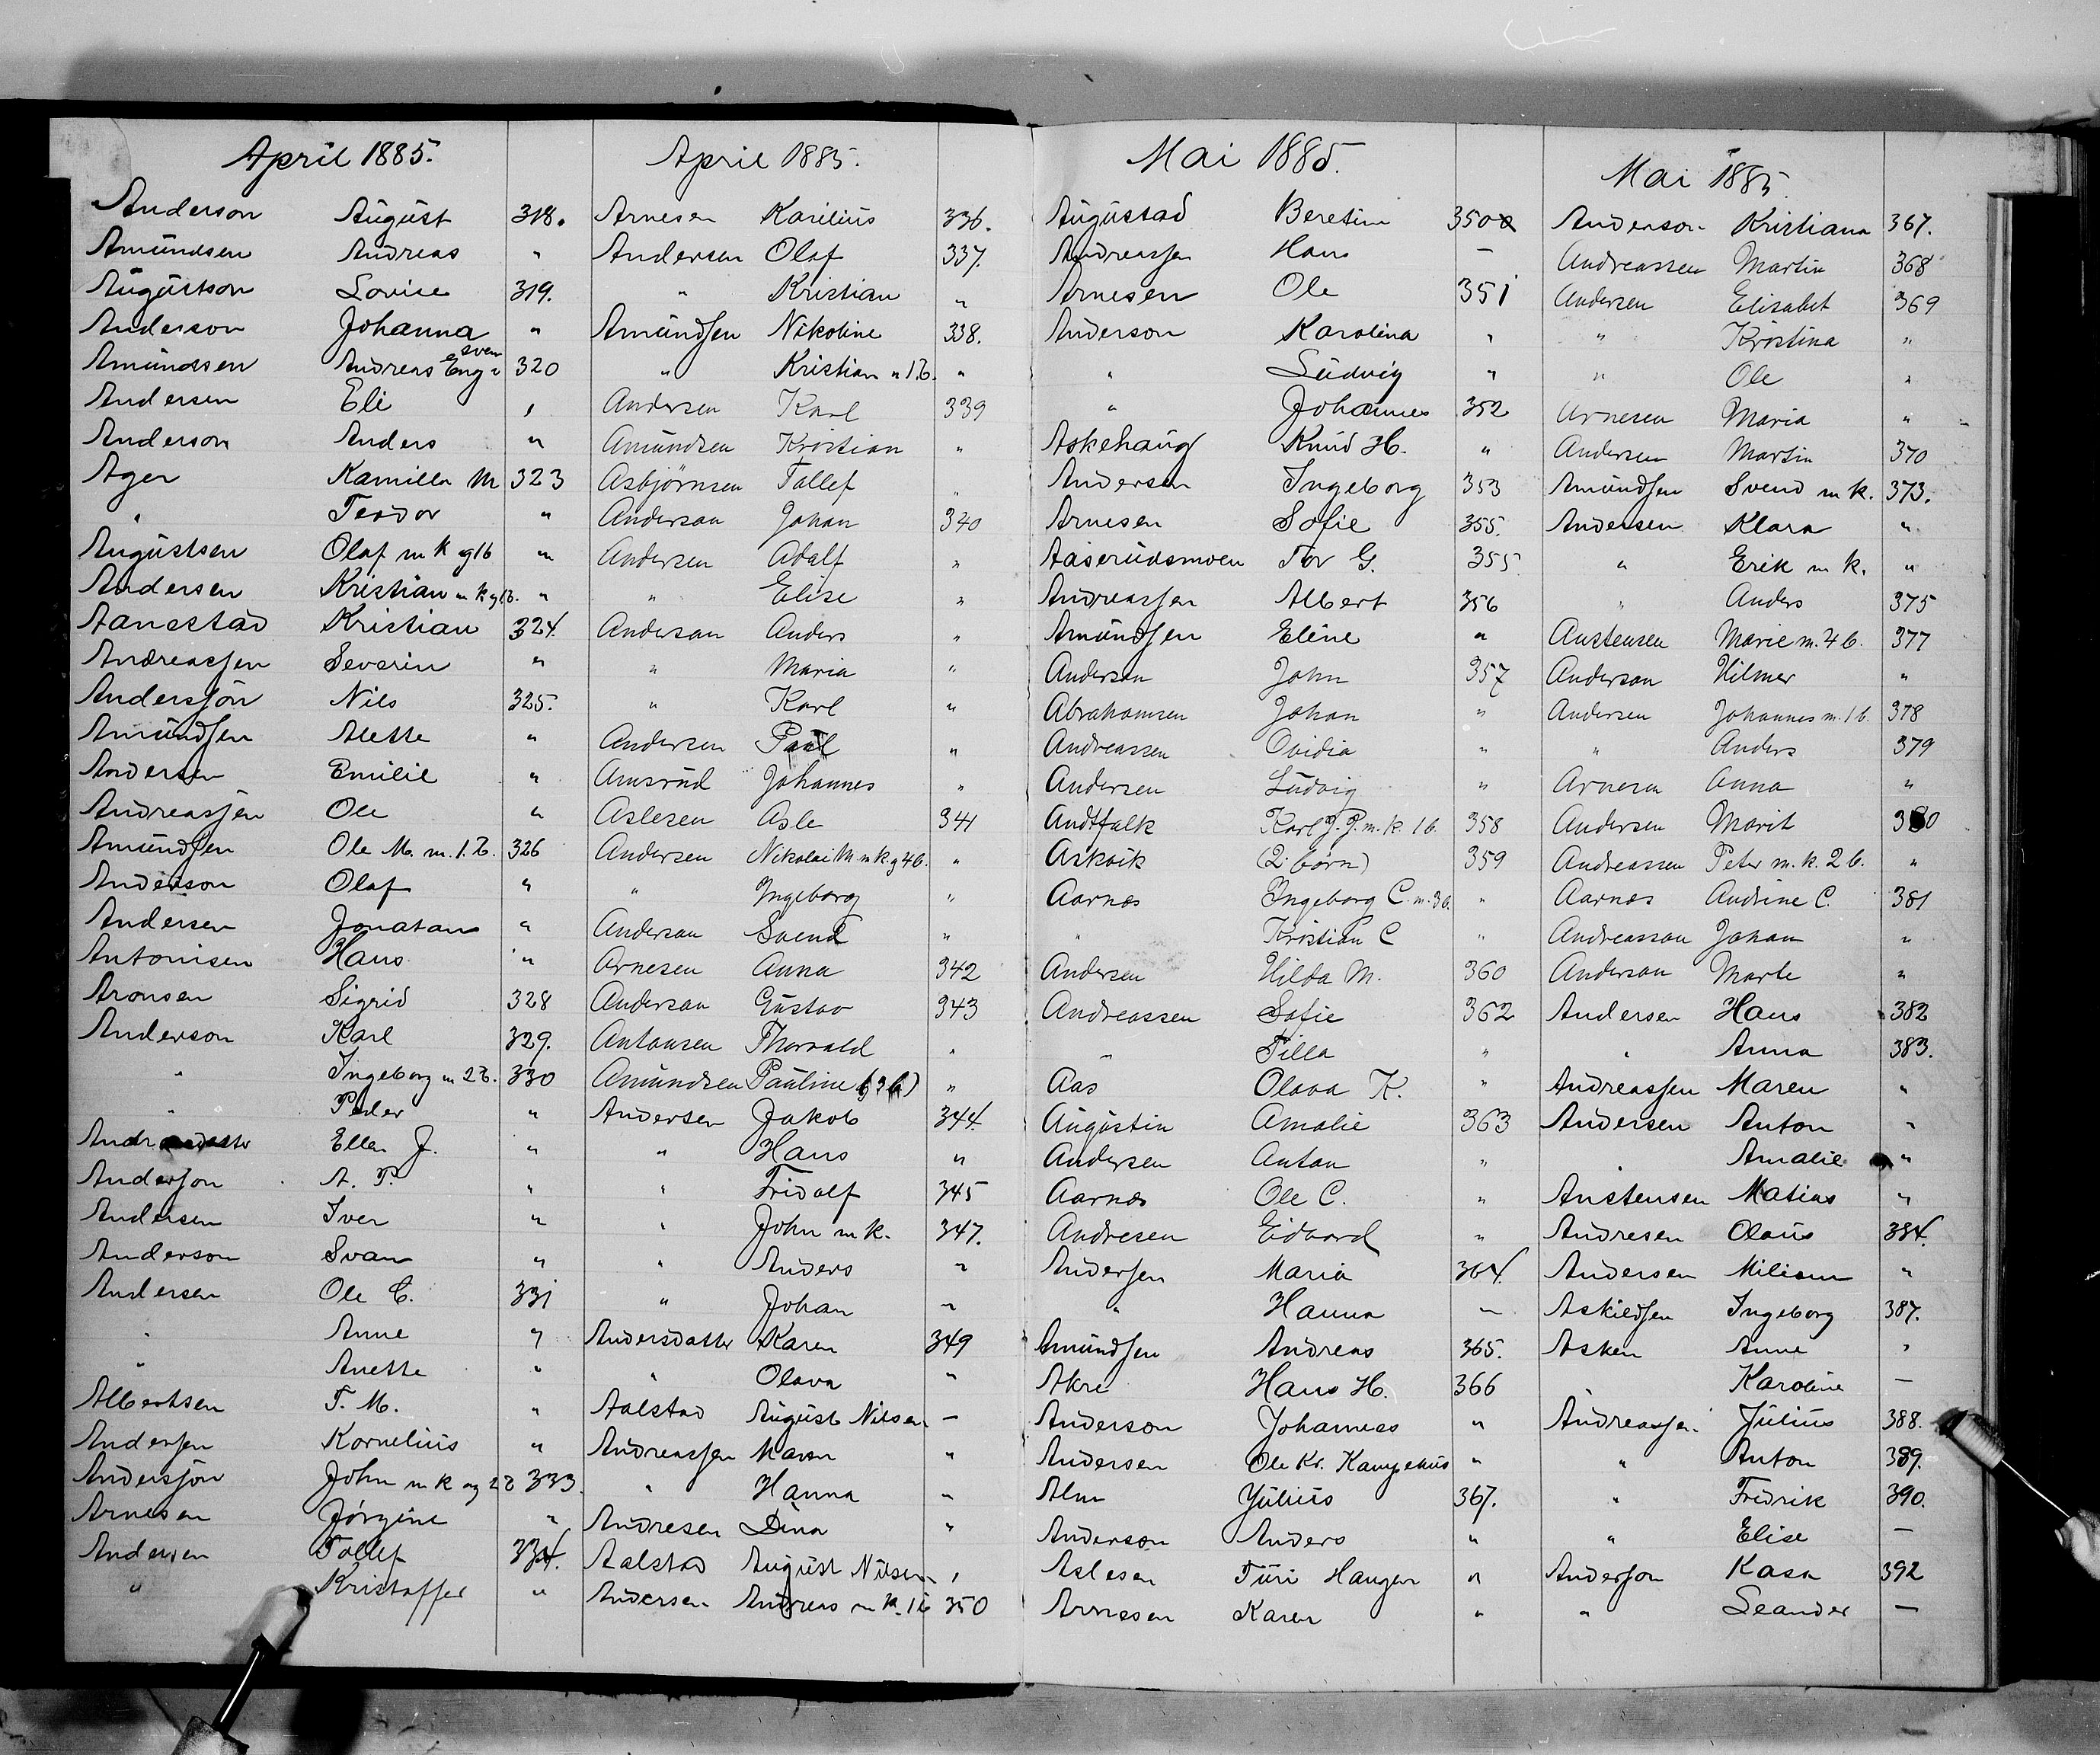 April 1885.
Anderson August 318.
Amundsen Andreas "
Augustson Lovise 319.
Anderson Johanna "
Amundsen Andreas 320
Andersen Eli "
Anderson Anders "
Ager Kamilla M 323
" Teodor "
Augustsen Olaf m k og 1 b "
Andersen Kristian m k og 1 b. "
Kristian 324.
Andreassen Severin "
Andersson Nils 325.
Amundsen Alette "
Andersen Emilie "
Andreassen Ole "
Amundsen Ole M. m. 1. b. 326
Anderson Olaf "
Andersen Jonatan "
Antonisen Hans "
Aronsen Sigrid 328
Anderson Karl 329.
" Ingeborg m 2 b. 330
" Peder "
Ellen J. "
Anderson A. P. "
Andersen Iver "
Anderson Svan "
Andersen Ole C. 331
" Anne "
" Anette "
Albertsen T. M. "
Andersen Kornelius "
Andersson John m k og 2 b 333.
Arnesen Jørgine "
Andersen Tollef 334.
" Kristoffer "
April 1885.
Arnesen Karilius 336.
Andersen Olaf 337.
" Kristian "
Amundsen Nikoline 338.
" Kristian m 1 b. "
Andersen Karl 339
Amundsen Kristian "
Asbjørnsen Tollef "
Anderson Johan 340
Andersen Adolf "
" Elise "
Anderson Anders "
" Maria "
" Karl "
Andersen Paul "
Amsrud Johannes "
Aslesen Asle 341
Andersen Nikolai M m k og 4 b. "
" Ingeborg "
Anderson Svend "
Arnesen Anna 342
Anderson Gustav 343
Antonsen Thorvald "
Amundsen Pauline "
Andersen Jakob 344.
" Hans "
" Fridolf 345
" John m k. 347.
" Anders "
" Johan "
Andersdatter Karen 349
" Olava "
Aalstad August Nilsen —
Andreassen Maren "
" Hanna "
Andresen Dina "
Aalstad August Nilsen "
Andersen Andreas m k. 1 b 350
Mai 1885.
Augustad Beretine 350
Andreassen Hans —
Arnesen Ole 351
Anderson Karolina "
" Ludvig "
" Johannes 352
Askehaug Knud H. "
Andersen Ingeborg 353
Arnesen Sofie 355.
Aaserudsmoen Tor G. 355
Andreassen Albert 356
Amundsen Eline "
Anderson John 357
Abrahamsen Johan "
Andreassen Ovidia "
Andersen Ludvig "
Karl J. P. m. k. 1 b. 358
Askvik (2 børn) 359
Aarnes Ingeborg C. m. 3 b. "
" Kristian C "
Andersen Hilda M. 360
Andreassen Sofie 362
" Tilla "
Aas Olava K. "
Augustin Amalie 363
Andersen Anton "
Aarnes Ole C. "
Andresen Edvard "
Andersen Maria 364.
" Hanna —
Amundsen Andreas 365.
Akre Hans H. 366
Anderson Johannes "
Andersen Ole Kr. Kampehus "
Alm Julius 367.
Anderson Anders "
Aslesen Turi Haugen "
Arnesen Karen "
Mai 1885
Anderson Kristiana 367.
Andreassen Martin 368
Andersen Elisabet 369
" Kristina "
" Ole "
Arnesen Maria "
Andersen Martin 370
Amundsen Svend m k. 373.
Andersen Klara "
" Erik m k. "
" Anders 375
Austensen Marie m. 4 b. 377
Anderson Hilmer "
Andersen Johannes m. 1 b. 378
" Anders 379
Arnesen Anna "
Andersen Marit 380
Andreassen Peter m. k. 2 b. "
Aarnes Andrine C. 381
Andreasson Johan "
Anderson Marte "
Andersen Hans 382
" Anna 383.
Andreassen Maren "
Andersen Anton "
" Amalie "
Anstensen Matias "
Andresen Olaus 384.
Andersen "
Askildsen Ingeborg 387.
Asken Anne "
" Karoline —
Andreassen Julius 388.
" Anton 389.
" Fredrik 390.
" Elise —
Anderson Kasa 392
" Leander —